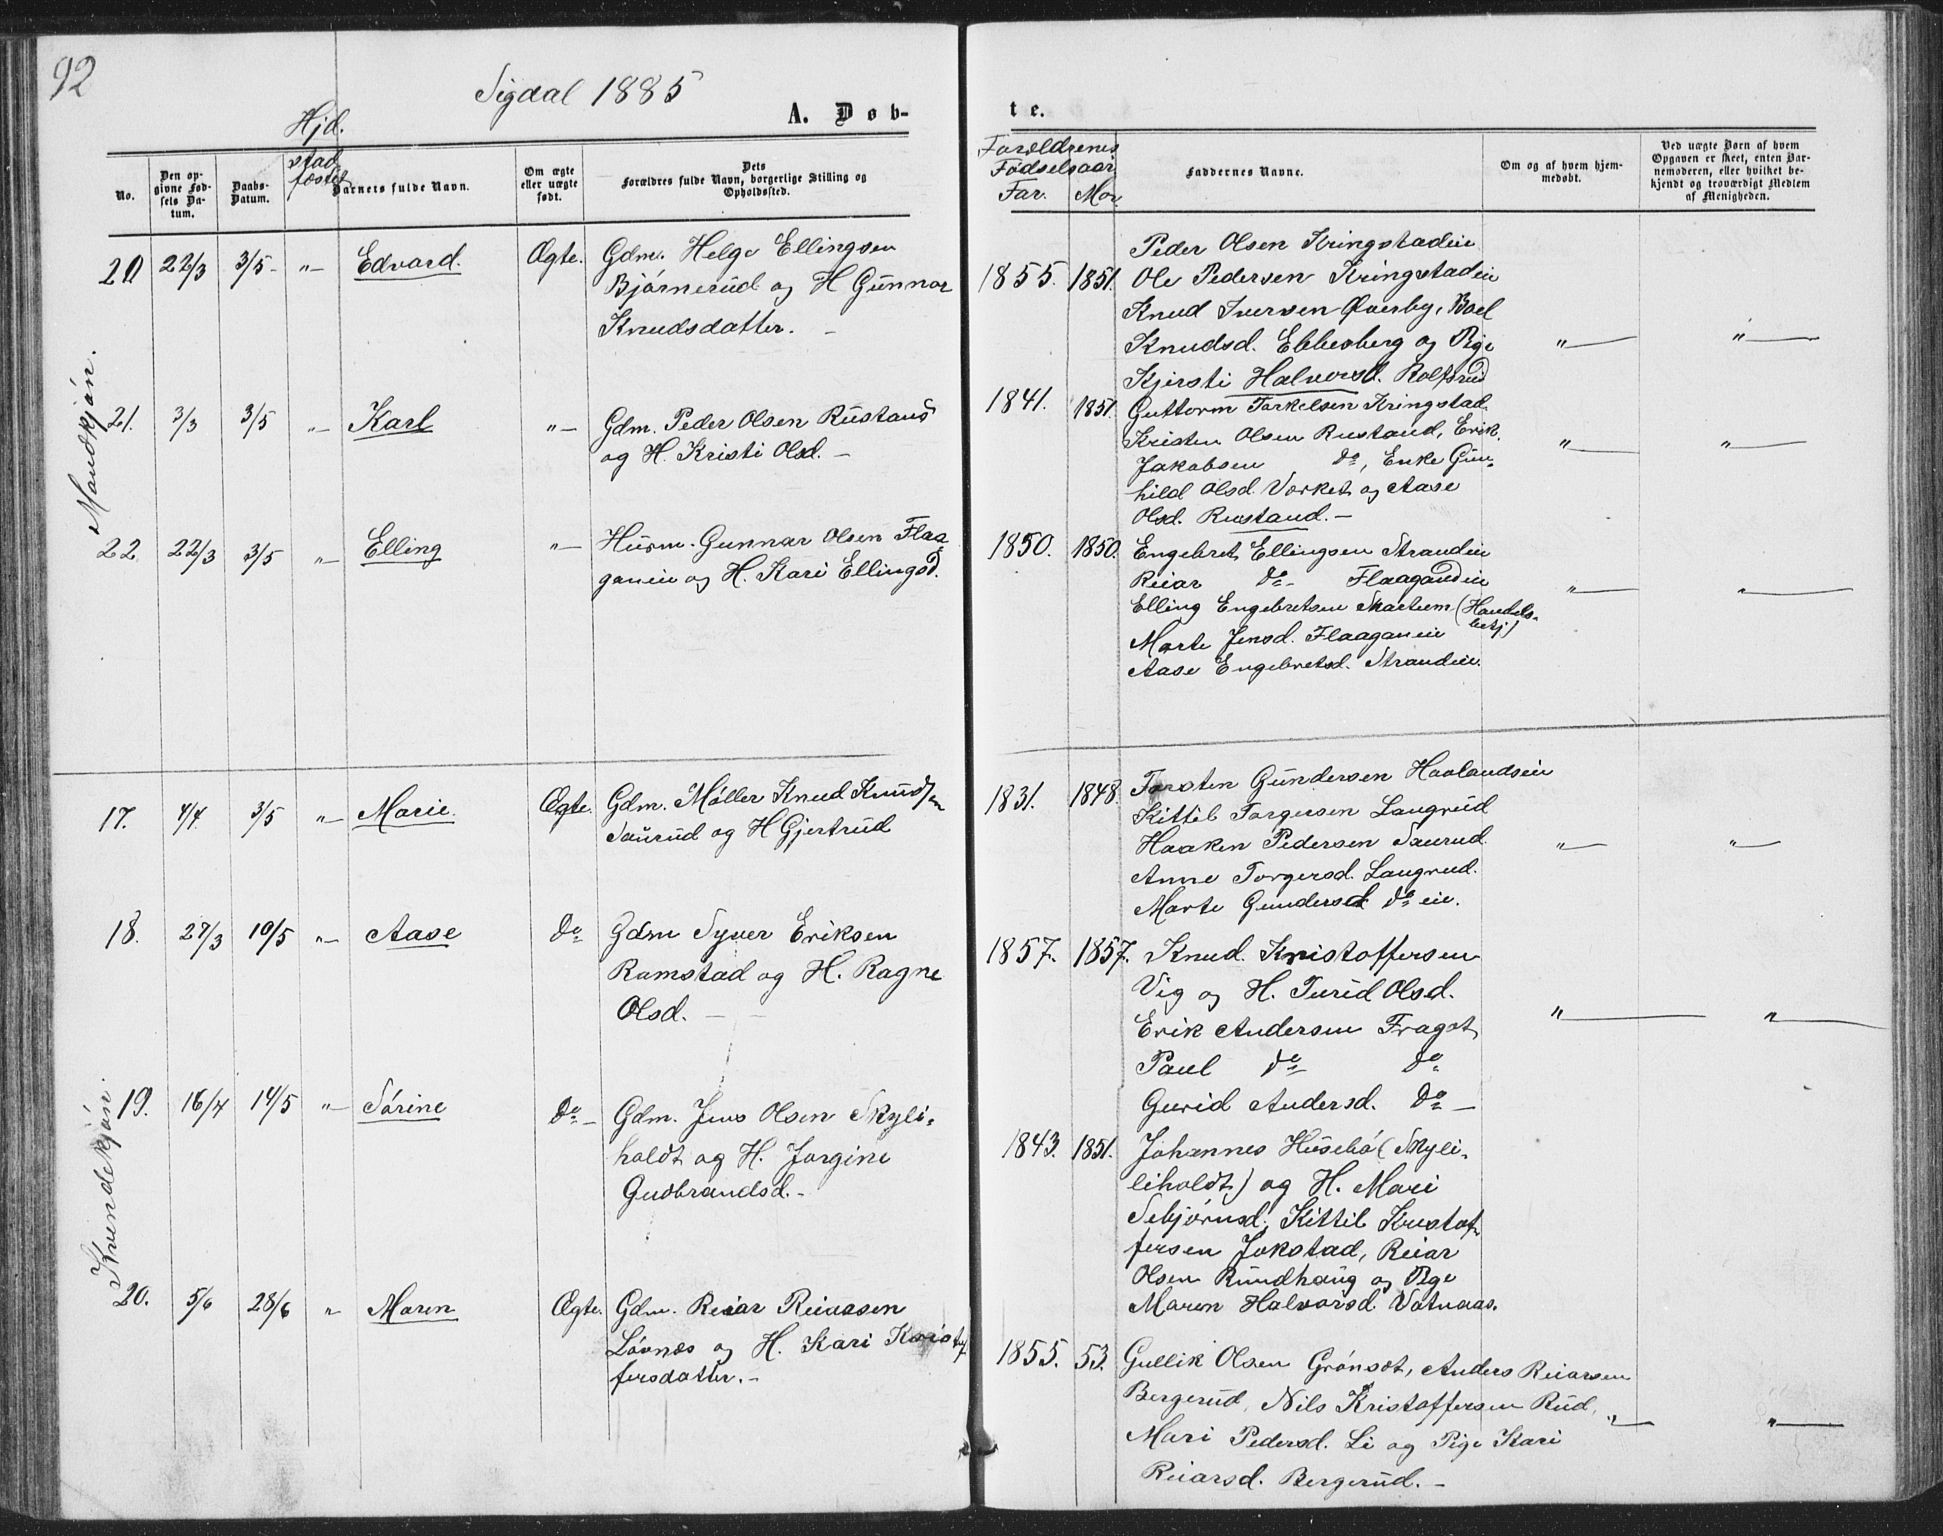 92
Sigdal 1885
A. Døb-
te.
Hjd.
stad
fæstet
No.
Den op-
givne Fød-
sels Da-
tum.
Daabs-
Datum.
Barnets fulde Navn.
Om ægte
eller uægte
født.
Dets
Forældres fulde Navn, borgerlige Stilling og
Opholdssted.
Forældrenes
Födselsaar
Far. Mor.
Faddernes Navne.
Om og af hvem hjem-
medøbt.
Ved uægte Børn af hvem
Opgaven er skeet, enten Bar-
nemoderen, eller hvilket be-
kjendt og troværdigt Medlem
af Menigheden.
Mandskjøn.
20 22/3 3/5 - „ - Edvard. Ægte. Gdm. Helge Ellingsen
Bjørnerud og H Gunnor
Knudsdatter. -
1855. 1851.
Peder Olsen Kringstadeie
Ole Pedersen Kringstadeie
Knud Iversen Øverby, Boel
Knudsd. Ebbesberg og Pige „ - „ -
Kjersti Halvorsd. Rolfsrud
21. 3/3 3/5 „ - Karl „ - Gdm. Peder Olsen Rustand
og H. Kristi Olsd. -
1841. 1851.
Guttorm Torkelsen Kringstad
Kristen Olsen Rustand, Erik
Jakobsen do, Enke Gun- „ - „ -
hild Olsd. Vorket og Aase
Olsd. Rustand. -
22 22/3 3/5 „ - Elling „ - Husm. Gunnar Olsen Flaa-
ganeie og H. Kari Ellingsd.
1850. 1850.
Engebret Ellingsen Strandeie
Reiar do - Flaagandeie
Elling Engebretsen Skartum (Handels- „ - „ -
betj)
Marte Jensd. Flaaganeie
Aase Engebretsd. Strandeie.
Kvindekjøn
17. 4/4 3/5 „ - Marie. Ægte. Gdm. Møller Knud Knudsen
Saurud og H Gjertrud
1831. 1848.
Torsten Gundersen Haolandseie
Kittil Torgersen Langrud
Haaken Pedersen Saurud. „ - „ -
Anne Torgersd. Langrud.
Marte Gundersd. do eie.
18. 27/3 10/5 „ - Aase do Gdm Syver Eriksen
Ramstad og H. Ragne
Olsd. -
1857. 1857.
Knud. Kristoffersen
Vig og H. Turid Olsd.
Erik Andersen Fragot „ - „ -
Paul do do
Guvid Andersd. do -
19. 16/4 14/5 „ - Sørine do - Gdm. Jens Olsen Skyli-
holdt og H. Jørgine
Gudbrandsd. -
1843. 1851.
Johannes Husebø (Skyli-
liholdt) og H. Mari
Sebjørnsd, Kittil Kristof-
fersen Jokstad, Reiar
Olsen Rundhaug og Pige
Maren Halvorsd Vatnaas.
20. 5/6 28/6 „ Maren Ægte. Gdm. Reiar Reiarsen
Løvnes og H. Kari Kristof-
fersdatter. -
1855. 53.
Gullik Olsen Grønset, Anders Reiarsen
Bergerud, Nils Kristoffersen Rud, „ - „ -
Mari Pedersd. Li og Pige Kari
Reiarsd. Bergerud. -